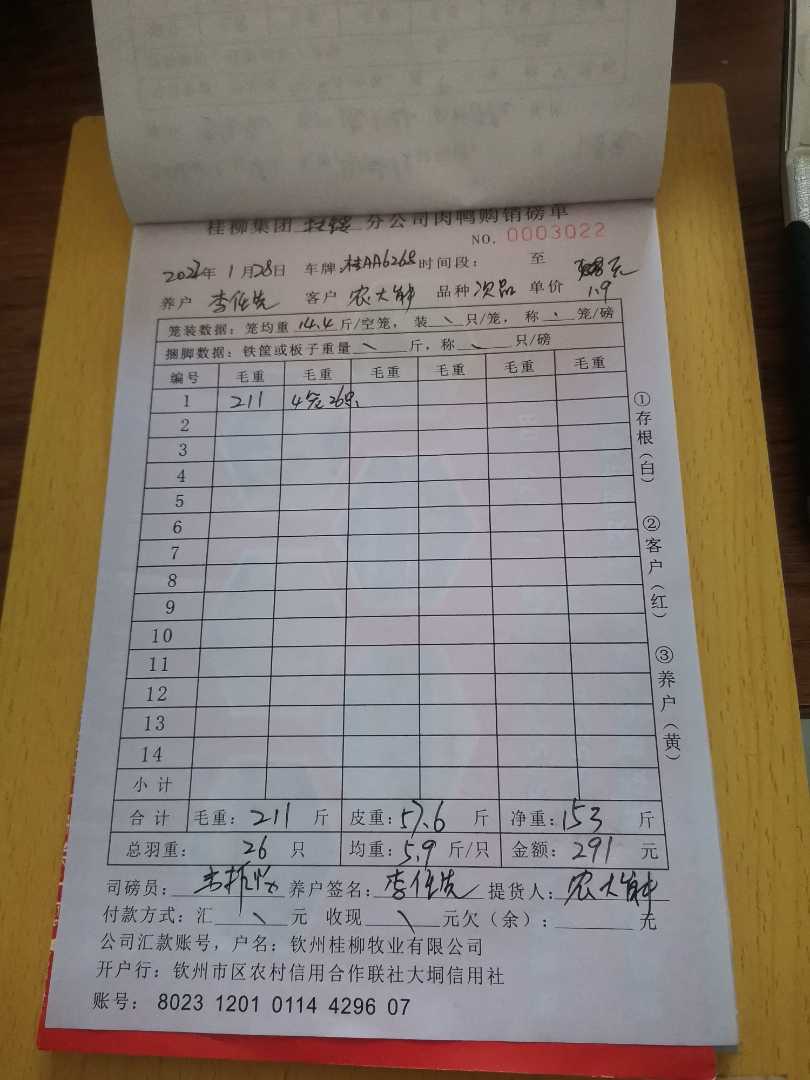 桂柳集团 分公司肉鸭购销磅单
NO. 0003022
2023年 1月28日 车牌:桂AA6268 时间段: 至
养户 李任先 客户 农大 品种 次品 单价 1.9
笼装数据: 笼均重 14.4 斤/空笼, 装 \ 只/笼, 称 \ 笼/磅
捆脚数据: 铁筐或板子重量 \ 斤, 称 \ 只/磅
编号 毛重 毛重 毛重 毛重 毛重 毛重
1 211 4笼26只
2
3
4
5
6
7
8
9
10
11
12
13
14
小计
合计 毛重: 211 斤 皮重: 57.6 斤 净重: 153 斤
总羽重: 26 只 均重: 5.9 斤/只 金额: 291 元
司磅员: 养户签名: 李任先 提货人: 农大
付款方式: 汇 \ 元 收现 \ 元欠(余): 元
公司汇款账号, 户名: 钦州桂柳牧业有限公司
开户行: 钦州市区农村信用合作联社大垌信用社
账号: 8023 1201 0114 4296 07
①存根(白)
②客户(红)
③养户(黄)